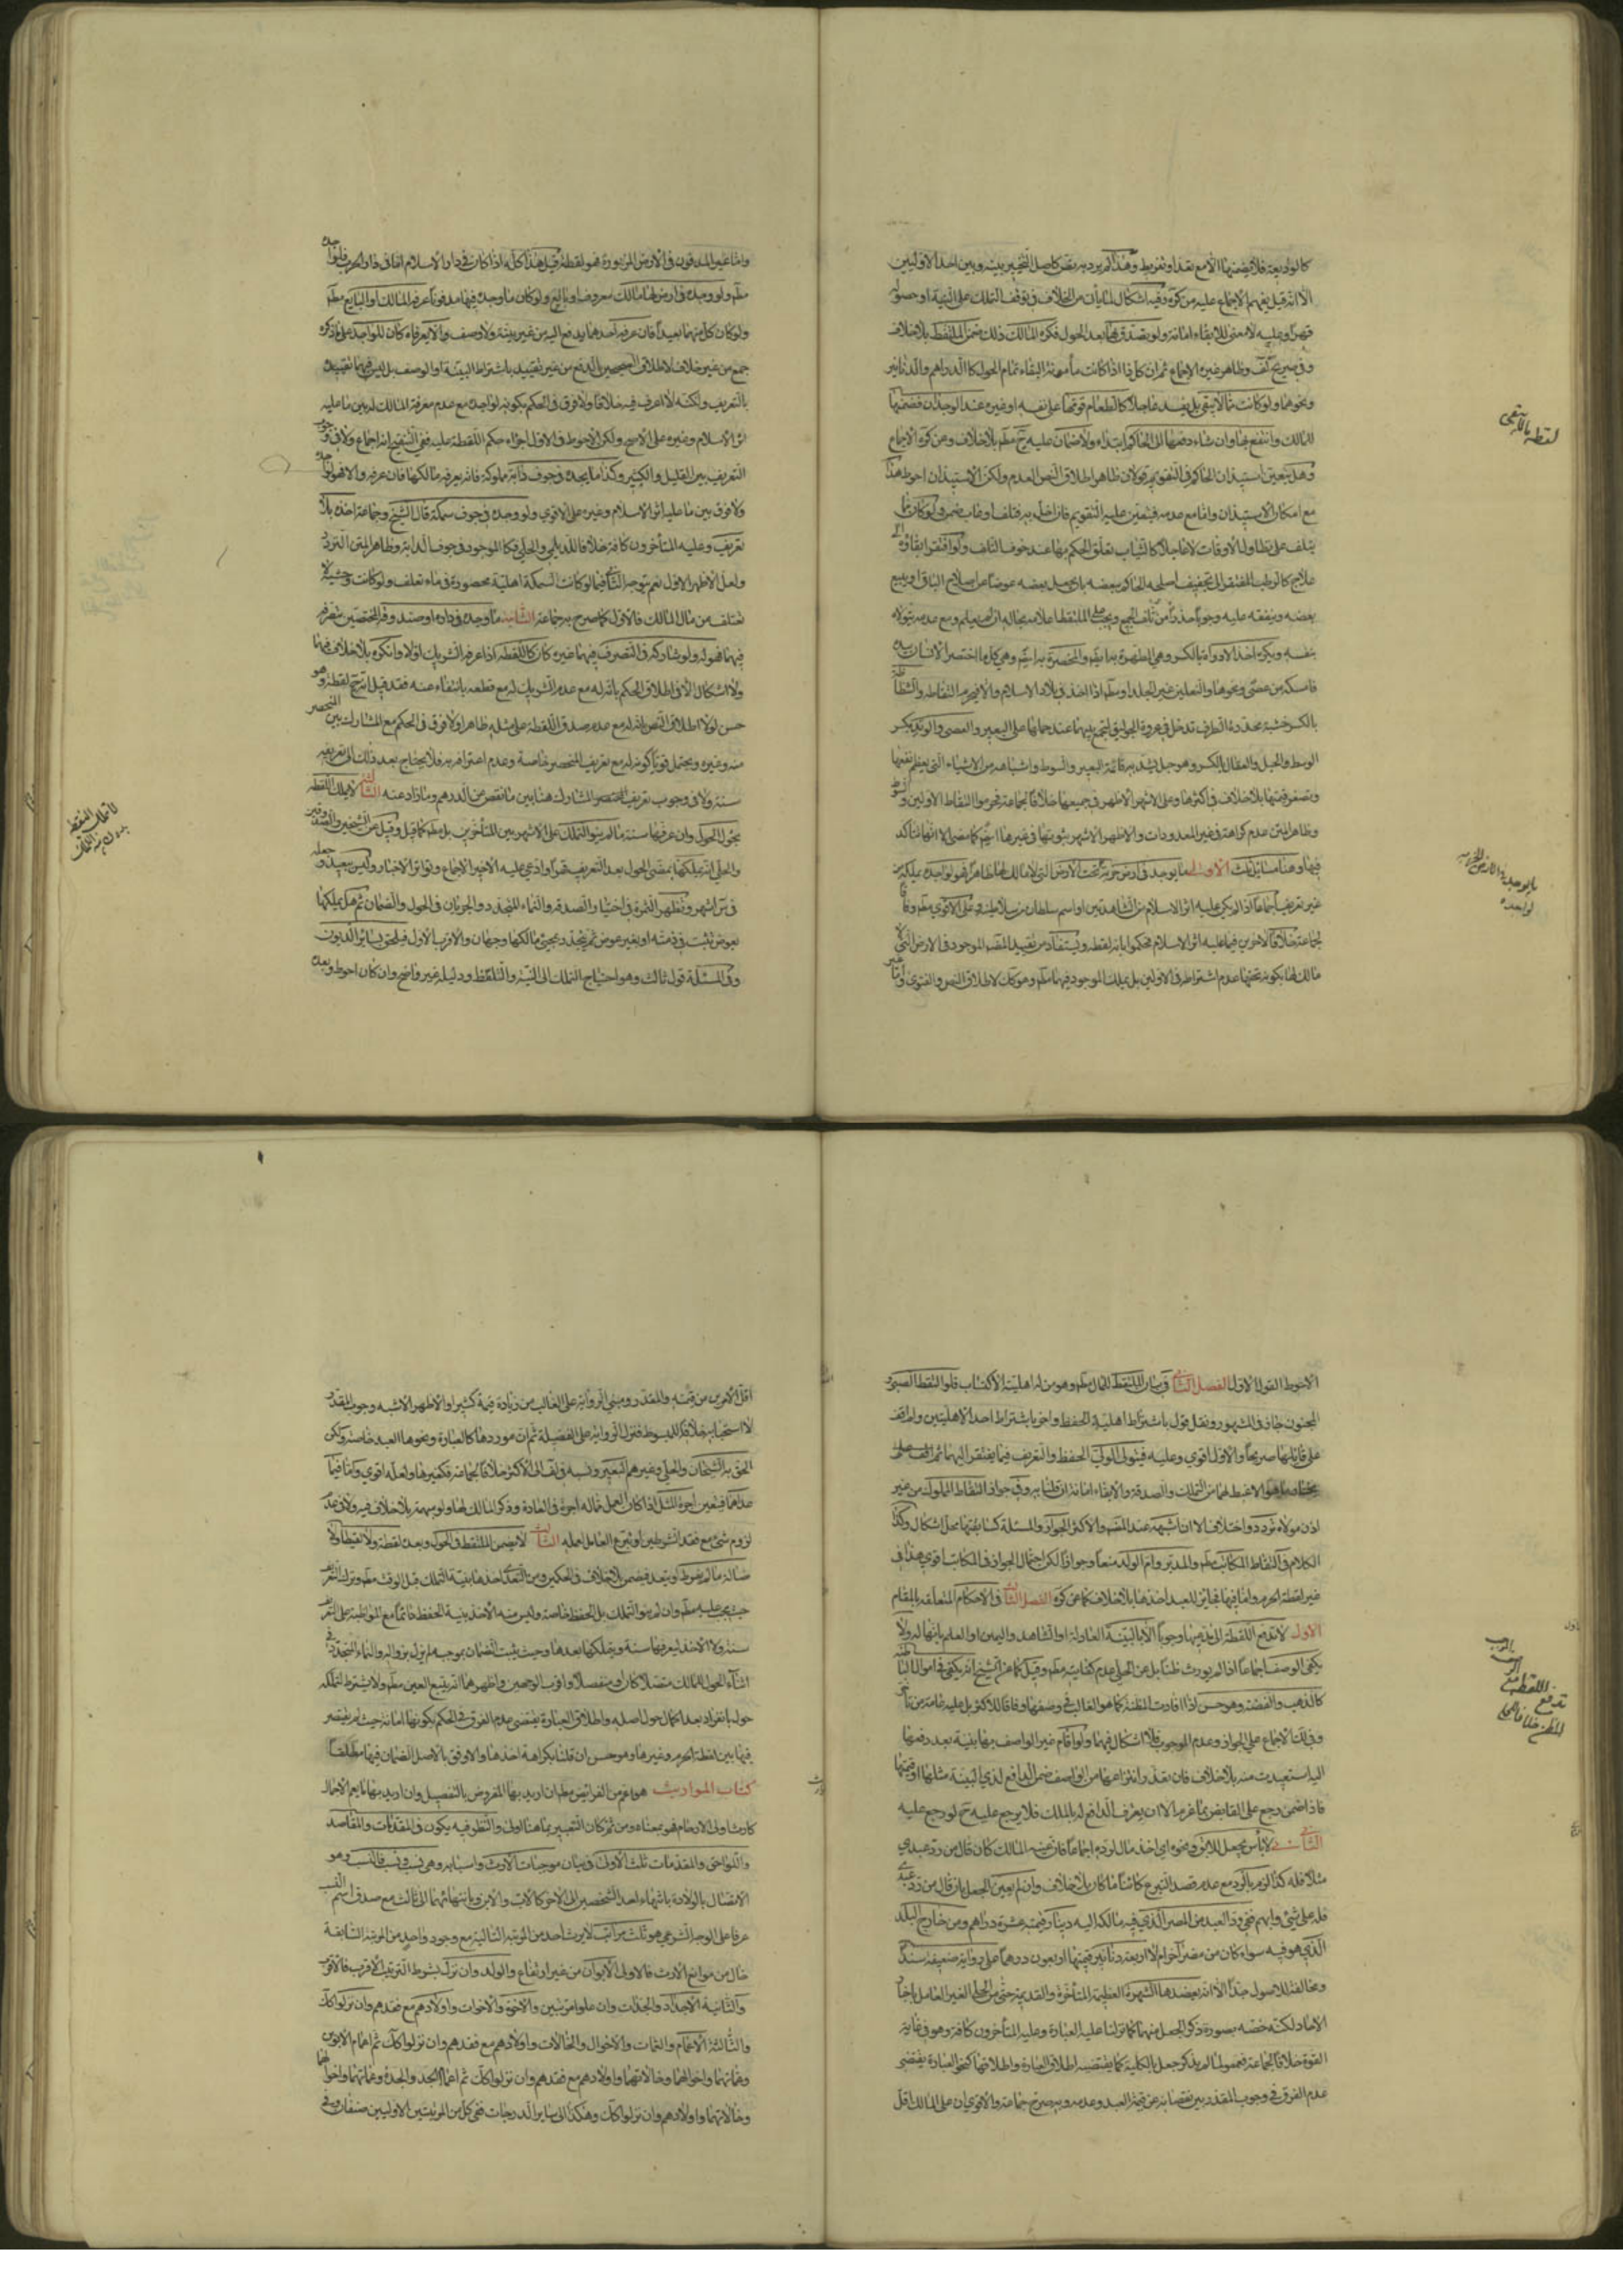 كالوديعة فلا يضمنها الا مع تعد او تفريط وهذا لم يرد به نص كاصل التخيير بينه وبين احد الاوليين
الا انه قيل يفهم الاجماع عليه من كره وفيه اشكال لما يأتي من الخلاف في توقف التملك على النية او حصوله
قهرا وعليه لا معنى للابقاء امانة ولو تصدق بها بعد الحول فكره المالك ذلك ضمن الملتقط بلا خلاف
وفي صريح كف وظاهر غيره الاجماع ثم ان كل ذا اذا كانت مأمونة البقاء تمام الحول كالدراهم والدنانير
ونحوهما ولو كانت مما لا يبقى بل يفسد عاجلا كالطعام قومها على نفسه او غيره عند الوجدان فضمنها
للمالك وانتفع بها وان شاء دفعها الى الحاكم ابتداء ولا ضمان عليه ح مطم بلا خلاف وعن كره الاجماع
وهل يتعين استيذان الحاكم في التقويم قولان ظاهر اطلاق النص العدم ولكن الاستيذان احوط هذا
مع امكان الاستيذان واما مع عدمه فيتعين عليه التقويم فان اخل به فتلف او عاب ضمن ولو كان مما
يتلف على تطاول الاوقات لا عاجلا كالثياب تعلق الحكم بها عند خوف التلف ولو افتقر ابقاؤه الى
علاج كالرطب المفتقر الى تجفيف اصلحه الحاكم ببعضه بان يجعل بعضه عوضا عن اصلاح الباقي او يبيع
بعضه وينفقه عليه وجوبا حذرا من تلف الجميع ويجب على الملتقط اعلامه بحاله ان لم يعلم ومع عدمه يتولاه
بنفسه ويكره اخذ الاداوة بالكسر وهي المطهرة به ايضم والمخصرة به ايضم وهي كل ما اختصر الانسان بيده
فامسكه من عصى ونحوها والنعلين غير الجلد او مطم اذا اخذ في بلاد الاسلام والا فيحرم التقاطه والشظاظ
بالكسر خشبة محددة الطرف تدخل في عروة الجواليق لتجمع بينهما عند حملها على البعير والعصى والوتد بكسر
الوسط والحبل والعقال بالكسر وهو حبل يشد به قائمة البعير والسوط واشباهه من الاشياء التي يعظم نفعها
وتصغر قيمتها بلا خلاف في اكثرها وعلى الاشهر الاظهر في جميعها خلافا لجماعة فحرموا التقاط الاولين والسوط
وظاهر المتن عدم كراهة في غير المعدودات والاظهر الاشهر ثبوتها في غيرها ايضم كما مضى الا انها هنا آكد
فيها وهنا مسائل ثلث الاولى ما يوجد في ارض خربة او تحت الارض التي لا مالك لها ظاهرا فهو لواجده يملكه من
غير تعريف اجماعا اذا لم يكن عليه اثر الاسلام من الشهادتين او اسم سلطان من سلاطينه وعلى الاقوى مطم وفاقا
لجماعة خلافا لآخرين فيما عليه اثر الاسلام فحكموا بانه لقطة ويستفاد من تقييد المصم الموجود في الارض التي لا
مالك لها بكونه تحتها عدم اشتراطه في الاولين بل يملك الموجود فيهما مطم وهو كك لاطلاق النص والفتوى واما غير
لقطة ما لا يبقى
ما يوجد في الارض الخربة
لواجده
واما غير المدفون في الارض المزبورة فهو لقطة قيل هذا كله اذا كان في دار الاسلام اما في دار الحرب فلواجده
مطم ولو وجده في ارض لها مالك معروف او بايع ولو كان ما وجده فيها مدفونا عرفه المالك او البايع مطم
ولو كان كل منهما بعيدا فان عرفه احدهما يدفع اليه من غير بينة ولا وصف والا يعرفاه كان للواجد على ما ذكره
جمع من غير خلاف لاطلاق الصحيحين بالدفع من غير تقييد باشتراط البينة او الوصف بل ليس فيهما تقييده
بالتعريف ولكنه لا اعرف فيه خلافا ولا فرق في الحكم بكونه لواجده مع عدم معرفة المالك له بين ما عليه
اثر الاسلام وغيره على الاصح ولكن الاحوط في الاول اجراء حكم اللقطة عليه ففي التنقيح انه اجماع ولا في وجوب
التعريف بين القليل والكثير وكذا ما يجده في جوف دابة مملوكة فانه يعرفه مالكها فان عرفه والا فهو لواجده
ولا فرق بين ما عليه اثر الاسلام وغيره على الاقوى ولو وجده في جوف سمكة قال الشيخ وجماعة اخذه بلا
تعريف وعليه المتأخرون كافة خلافا للديلمي والحلي فكالموجود في جوف الدابة وظاهر المتن التردد
ولعل الاظهر الاول نعم يتوجه الثاني فيما لو كانت السمكة اهلية محصورة في ماء تعلف ولو كانت وحشية لا
تعتلف من مال المالك فالاول كما صرح به جماعة الثانية ما وجده في داره او صندوقه المختصين بتصرفه
فيهما فهو له ولو شاركه في التصرف فيهما غيره كان كاللقطة اذا عرفه الشريك اولا وانكره بلا خلاف فيهما
ولا اشكال الا في اطلاق الحكم بانه له مع عدم الشريك له مع قطعه بانتفاءه عنه فقد قيل انه ح لقطة وهو
حسن لولا اطلاق النص بانه له مع عدم صدق اللقطة على مثله ظاهرا ولا فرق في الحكم مع المشارك بين المنحصر
منه وغيره ويحتمل قويا كونه له مع تعريف المنحصر خاصة وعدم اعترافه به فلا يحتاج بعد ذلك الى تعريفه
سنة ولا في وجوب تعريف المنحصر المشارك هنا بين ما نقص من الدرهم وما زاد عنه الثالثة لا يملك اللقطة
بحول الحول وان عرفها سنة ما لم ينو التملك على الاشهر بين المتأخرين بل مطم كما قيل وقيل عن الشيخين والصدوقين
والحلي انه يملكها بمضي الحول بعد التعريف قهرا وادعى عليه الاخير الاجماع وتواتر الاخبار وليس ببعيد وجعله
في س اشهر وتظهر الثمرة في اختيار الصدقة والنماء المتجدد والجريان في الحول والضمان ثم هل يملكها
بعوض تثبت في ذمته او بغير عوض ثم يتجدد بمجيئ مالكها وجهان والاقرب الاول فيلحق بسائر الديون
وفي المسئلة قول ثالث وهو احتياج التملك الى النية والتلفظ ودليله غير واضح وان كان احوط وبعده
لا تملك اللقطة
بدون نية التملك
الاحوط القول الاول الفصل الثاني في بيان الملتقط للمال مطم وهو من له اهلية الاكتساب فلو التقط الصبي او
المجنون جاز في المشهور ونقل قول باشتراط اهلية الحفظ واخر باشتراط احد الاهليتين ولم اقف
على قائلهما صريحا والاول اقوى وعليه فيتولى الولي الحفظ والتعريف فيما يفتقر اليهما ثم
يختار ما هو الاغبط لهما من التملك والصدقة والابقاء امانة ان قلنا به وفي جواز التقاط المملوك من غير
اذن مولاه تردد واختلاف الا ان اشبهه عند المصم والاكثر الجواز والمسئلة كسابقتها محل اشكال وكذا
الكلام في التقاط المكاتب مطم والمدبر وام الولد منعا وجوازا لكن احتمال الجواز في المكاتب اقوى هذا في
غير لقطة الحرم واما فيها فجائز للعبد اخذها بلا خلاف كما عن كره الفصل الثالث في الاحكام المتعلقة بالمقام
الاول لا تدفع اللقطة الى مدعيها وجوبا الا بالبينة العادلة او الشاهد واليمين او العلم بانها له ولا
يكفي الوصف اجماعا اذا لم يورث ظنا بل عن الحلي عدم كفايته مطم وقيل كما عن الشيخ انه يكفي في الاموال الباطنة
كالذهب والفضة وهو حسن اذا افادت المظنة كما هو الغالب في وصفها وفاقا للاكثر بل عليه عامة من تأخر
وفي لك الاجماع على الجواز وعدم الوجوب فلا اشكال فيهما ولو اقام غير الواصف بها بينة بعد دفعها
اليه استعيدت منه بلا خلاف فان تعذر انتزاعها من الواصف ضمن الدافع لذي البينة مثلها او قيمتها
فاذا ضمن رجع على القابض بما غرم الا ان يعترف الدافع له بالملك فلا يرجع عليه ح لو رجع عليه
الثاني لا بأس بجعل للابق ونحوه اي اخذ مال لرده اجماعا فان عينه المالك كان قال من رد عبدي
مثلا فله كذا لزم بالرد مع عدم قصد التبرع كائنا ما كان بلا خلاف وان لم يعين الجعل بان قال من رد عبدي
فله علي شيئ وابهم ففي رد العبد من المصر الذي فيه مالكه اليه دينار قيمته عشرة دراهم ومن خارج البلد
الذي هو فيه سواء كان من مصر آخر ام لا اربعة دنانير قيمتها اربعون درهما على رواية ضعيفة سندا
ومخالفة للاصول جدا الا انه يعضدها الشهرة العظيمة المتأخرة والقديمة حتى من الحلي الغير العامل باخبار
الاحاد لكنه خصه بصورة ذكر الجعل مبهما كما نزلنا عليه العبارة وعليه المتأخرون كافة وهو في غاية
القوة خلافا لجماعة فعمموا لما لم يذكر جعل بالكلية كما يقتضيه اطلاق العبارة واطلاقها كنحو العبارة يقتضي
عدم الفرق في وجوب المقدر بين نقصانه عن قيمة العبد وعدمه وبه صرح جماعة والاقوى ان على المالك اقل
تدفع اللقطة مع
اقل الامرين من قيمته والمقدر ومبنى الرواية على الغالب من زيادة قيمة كثيرا والاظهر الاشبه وجوب المقدر
لا استحبابه خلافا للمبسوط فنزل الرواية على الفضيلة ثم ان موردها كالعبارة ونحوها العبد خاصة ولكن
الحق به الشيخان والحلي وغيرهم البعير ونسبه في لف الى الاكثر خلافا لجماعة فكغيرها ولعله اقوى واما فيما
عداهما فيتعين اجرة المثل اذا كان العمل مما له اجرة في العادة وذكر المالك لها ولو مبهمة بلا خلاف فيه ولا في عدم
لزوم شيئ مع فقد الشرطين او تبرع العامل بعمله الثالث لا يضمن الملتقط في الحول وبعده لقطة ولا لقيطا ولا
ضالة ما لم يفرط او يتعد فيضمن بلا خلاف في الحكمين ومن التعدي اخذها بنية التملك قبل الوقت مطم وترك التعريف
حيث يجب عليه مطم وان لم ينو التملك بل الحفظ خاصة وليس منه الاخذ بنية الحفظ دائما مع المواظبة على التعريف
سنة ولا الاخذ ليعرفها سنة ويتملكها بعدها وحيث يثبت الضمان بموجبه لم يزل بزواله والنماء المتجدد في
اثناء الحول للمالك متصلا كان او منفصلا واقرب الوجهين واظهرهما انه يتبع العين مطم ولا يشترط لتملكه
حول بانفراد بعد اكمال حول اصله واطلاق العبارة يقتضي عدم الفرق في الحكم بكونها امانة حيث لم يقتصر
فيها بين لقطة الحرم وغيرها وهو حسن ان قلنا بكراهة اخذها والاوفق بالاصل الضمان فيها مطلقا
كتاب المواريث هو اعم من الفرائض مطم ان اريد بها المفروض بالتفصيل وان اريد بها ما يعم الاجمال
كارث اولى الارحام فهو بمعناه ومن ثم كان التعبير بما هنا اولى والنظر فيه يكون في المقدمات والمقاصد
واللواحق والمقدمات ثلث الاولى في بيان موجبات الارث واسبابه وهي نسب وسبب فالنسب وهو
الاتصال بالولادة بانتهاء احد الشخصين الى الاخر كالاب والابن وبانتهائهما الى ثالث مع صدق اسم النسب
عرفا على الوجه الشرعي هو ثلث مراتب لا يرث احد من المرتبة التالية مع وجود واحد من المرتبة السابقة
خال من موانع الارث فالاولى الابوان من غير ارتفاع والولد وان نزل بشرط الترتيب الاقرب فالاقرب
والثانية الاجداد والجدات وان علوا مرتبين والاخوة والاخوات واولادهم مع فقدهم وان نزلوا كك
والثالثة الاعمام والعمات والاخوال والخالات واولادهم مع فقدهم وان نزلوا كك ثم اعمام الابوين
وعماتهما واخوالهما وخالاتهما واولادهم مع فقدهم وان نزلوا كك ثم اعمام الجد والجدة وعماتهما واخوالهما
وخالاتهما واولادهم وان نزلوا كك وهكذا الى سائر الدرجات ففي كل من المرتبتين الاوليين صنفان وفي